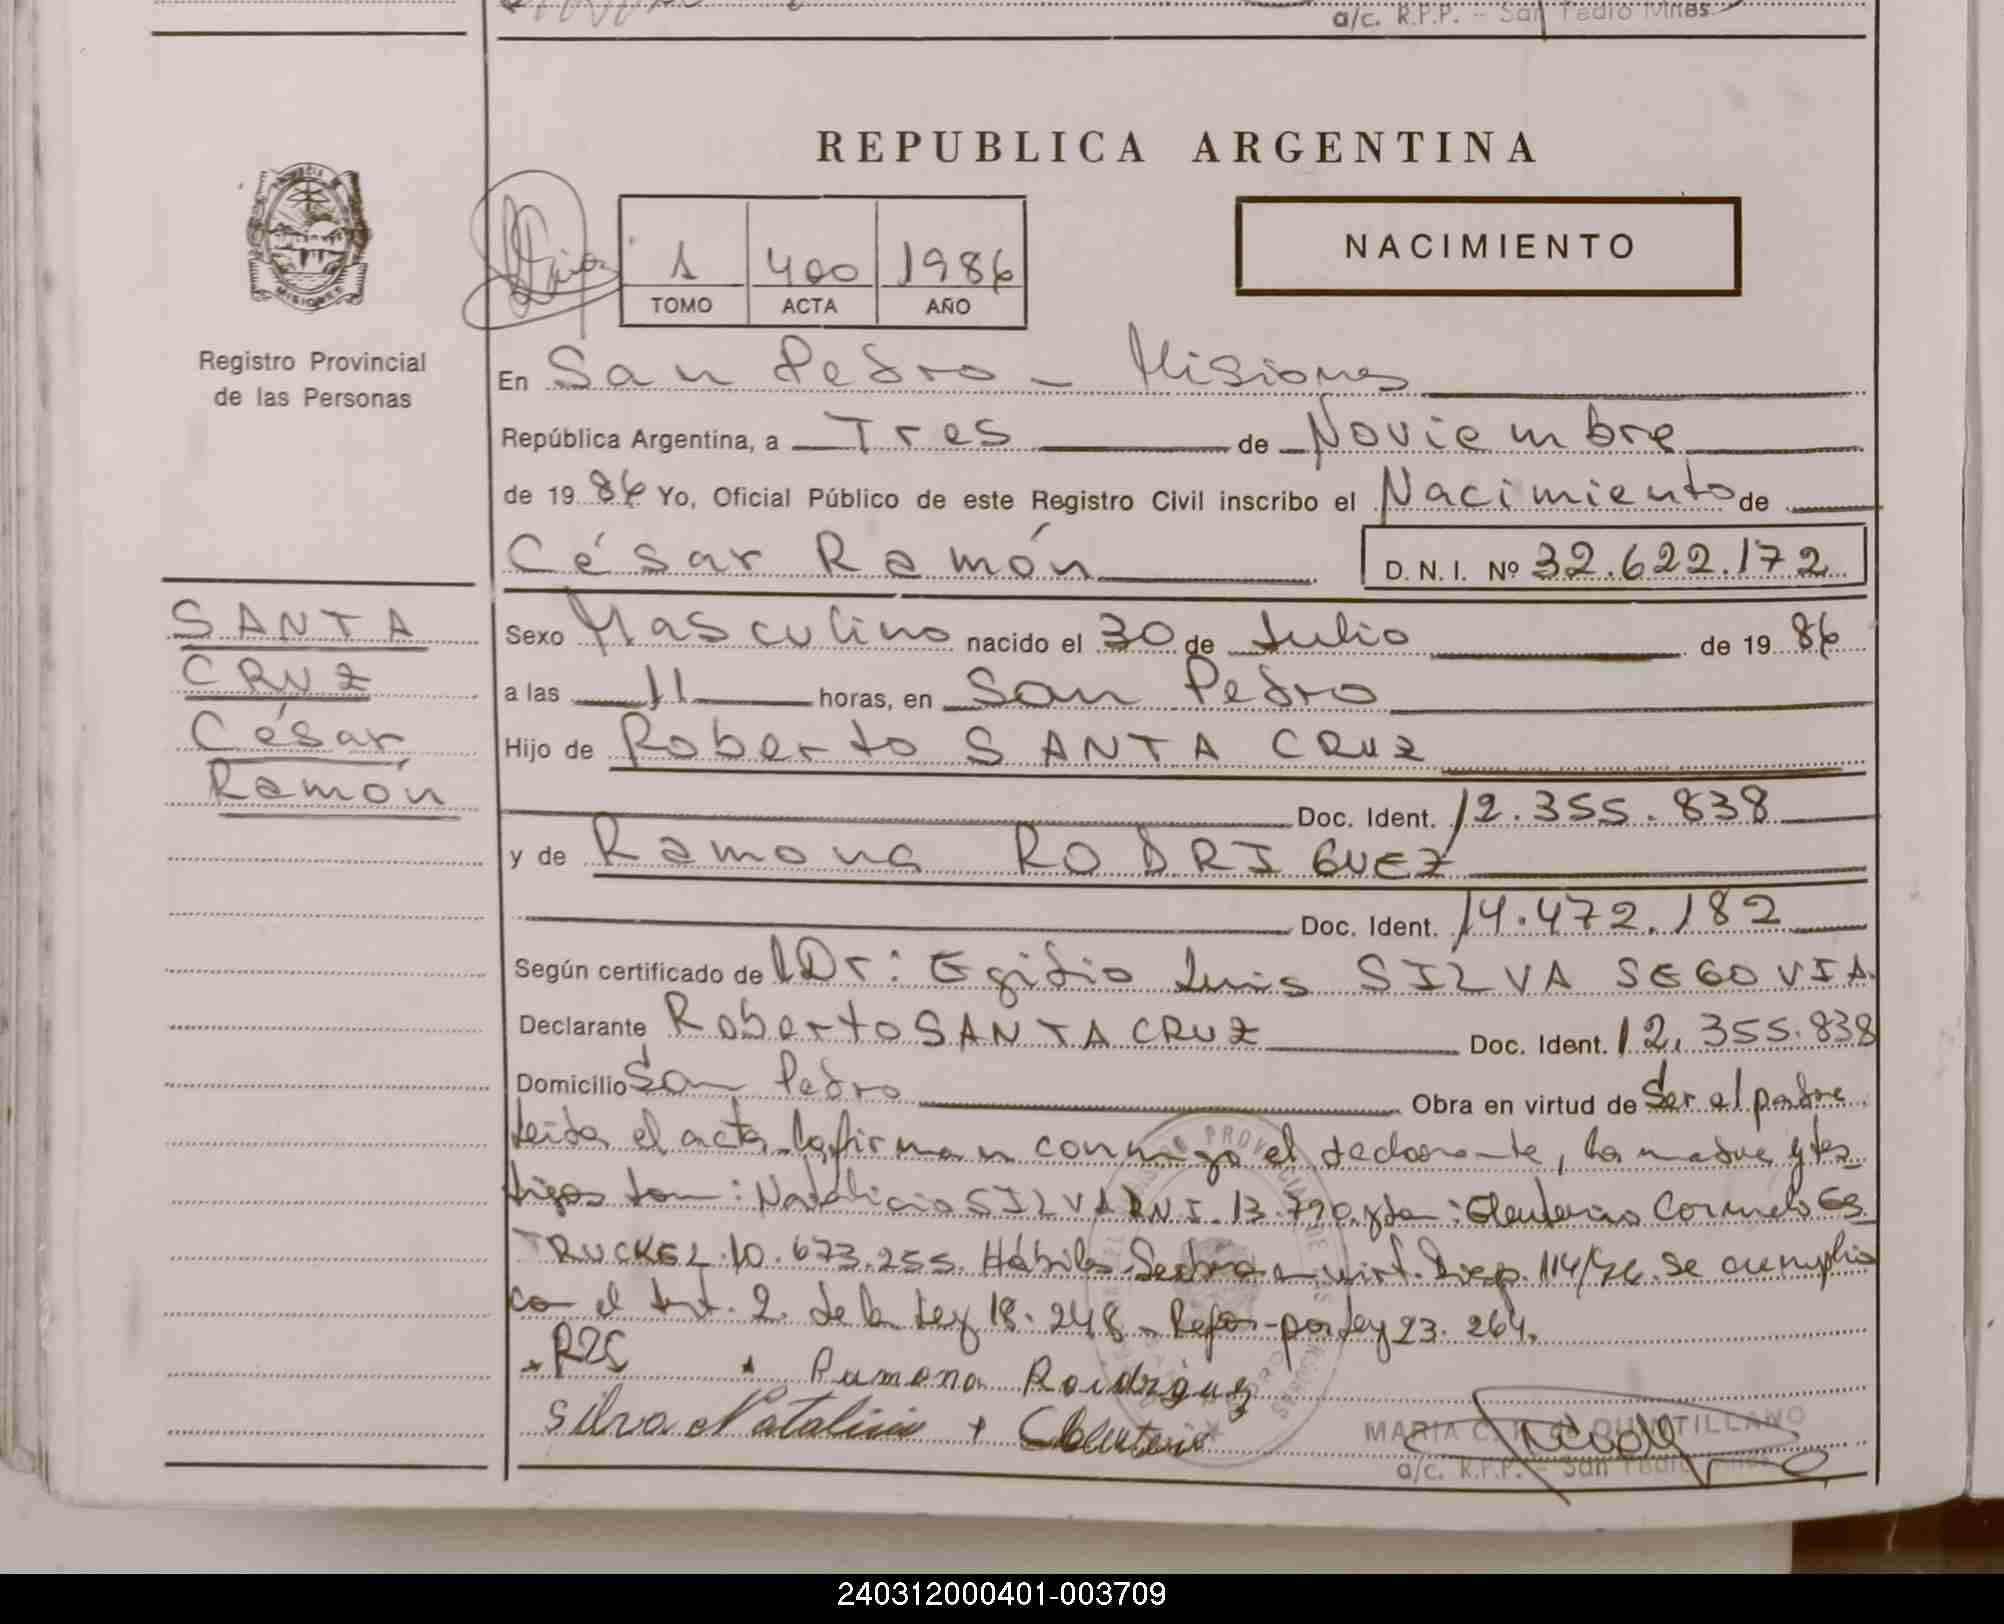 a/c. R.P.P. - San Pedro Mnes.
REPUBLICA ARGENTINA
PROVINCIA DE
MISIONES
NACIMIENTO
1 400 1986
TOMO ACTA AÑO
Registro Provincial
de las Personas
En San Pedro - Misiones
República Argentina, a Tres de Noviembre
de 19 86 Yo, Oficial Público de este Registro Civil inscribo el Nacimiento de
César Ramón D.N.I. Nº 32.622.172
SANTA
CRUZ
César
Ramón
Sexo Masculino nacido el 30 de Julio de 19 86
a las 11 horas, en San Pedro
Hijo de Roberto SANTA CRUZ
Doc. Ident. 12.355.838
y de Ramona RODRIGUEZ
Doc. Ident. 14.472.182
Según certificado de Dr: Egidio Luis SILVA SEGOVIA
Declarante Roberto SANTA CRUZ Doc. Ident. 12.355.838
Domicilio San Pedro Obra en virtud de Ser el padre
leida el acta, la firman conmigo el declarante, la madre y tes
tigos son: Natalicio SILVA DNI. 13.790. : Eleuterio Cornelo ES
TRUCKEL 10.673.255. Hábiles virt. Disp. 114/86. Se cumplio
con el Art. 2. de la Ley 18.248 - Refor - por Ley 23.264.
RSC Ramona Roidriguez
Silva Natalicio + Eleuterio
MARIA C. QUINTILLANO
a/c. R.P.P. - San Pedro Mnes.
240312000401-003709